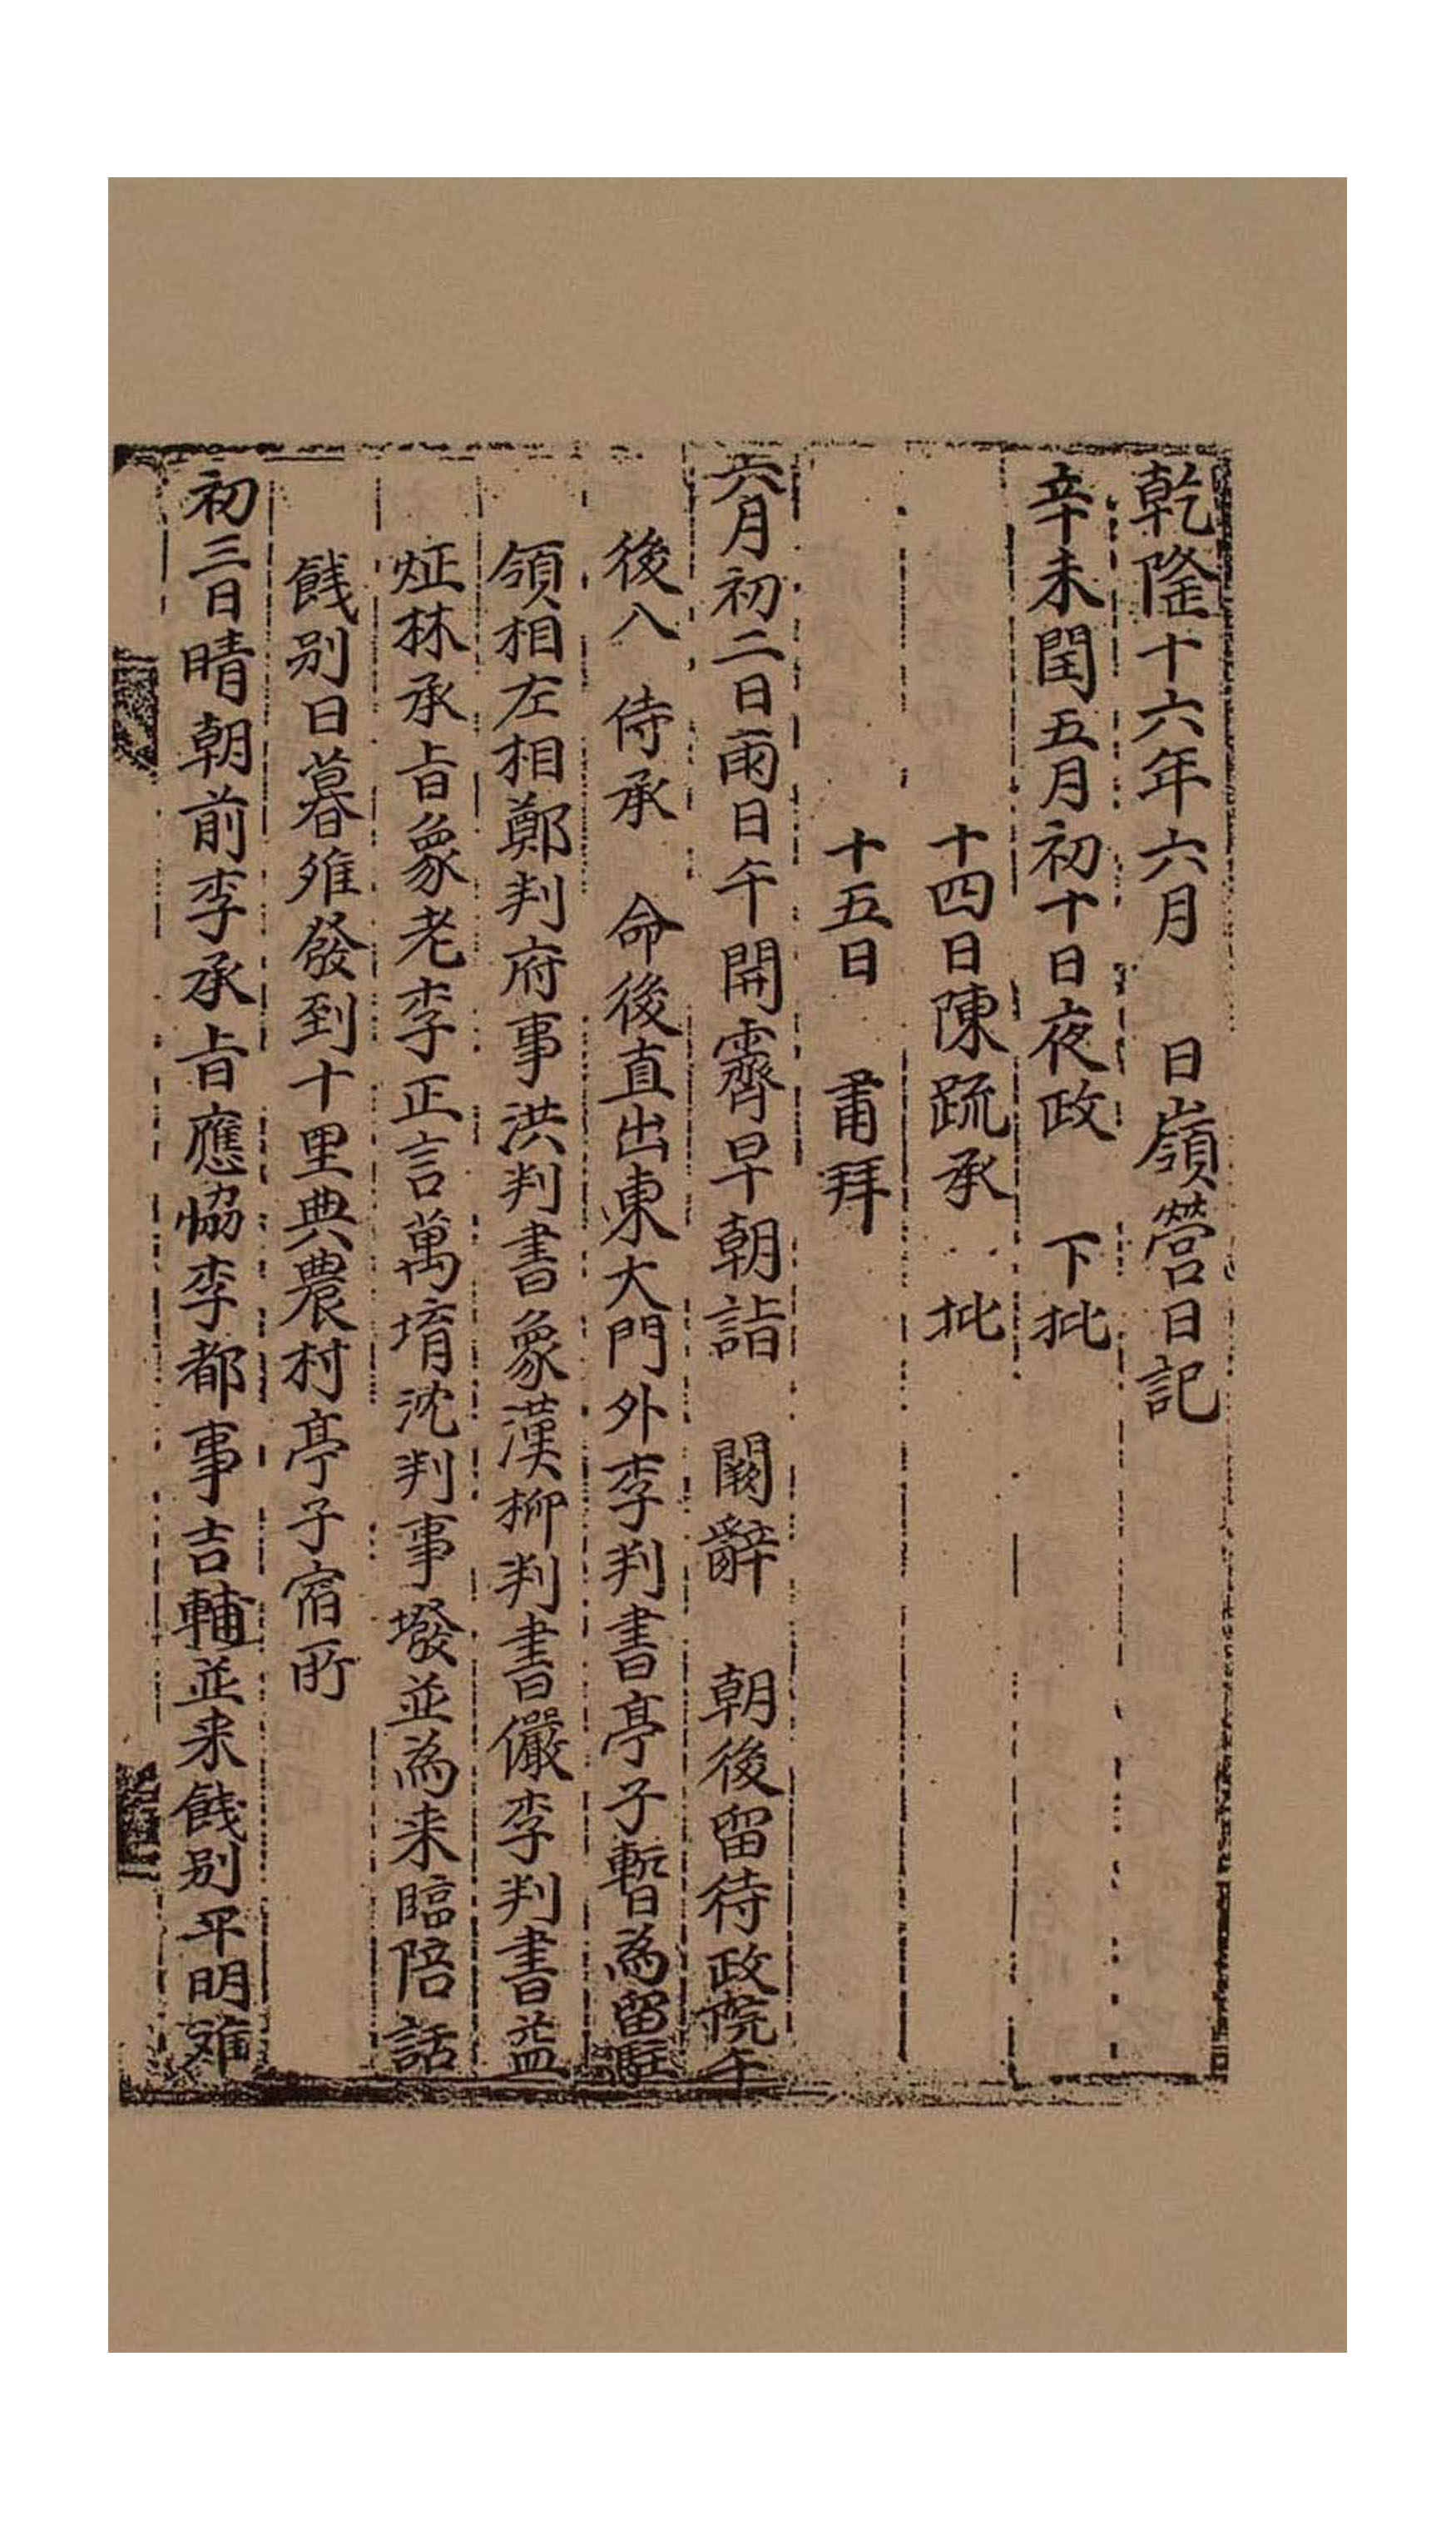 乾隆十六年六月　日嶺營日記
辛未閏五月初十日夜政　下批
十四日陳疏承　批
十五日　肅拜
六月初二日雨日午開霽早朝詣　闕辭　朝後留待政院午
後入　侍承　命後直出東大門外李判書亭子暫爲留駐
領相左相鄭判府事洪判書象漢柳判書儼李判書益
炡林承旨象老李正言萬堉沈判事墢並爲来臨陪話
餞別日暮離發到十里典農村亭子宿所
初三日晴朝前李承旨應協李都事吉輔並来餞別平明離